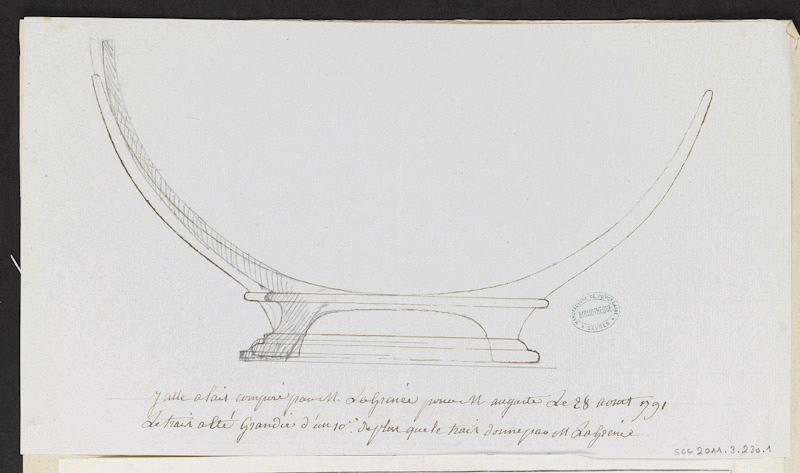 MANUFACTURE DE PORCELAINE
BIBLIOTHÈQUE
SÈVRES
Jatte a lait composé par M. LaGrenée pour M auguste Le 28 aoust 1791
Le trait a Eté Grandie d'un 10.e de plus que le trait donné par M LaGrenée
SCC 2011.3.230.1